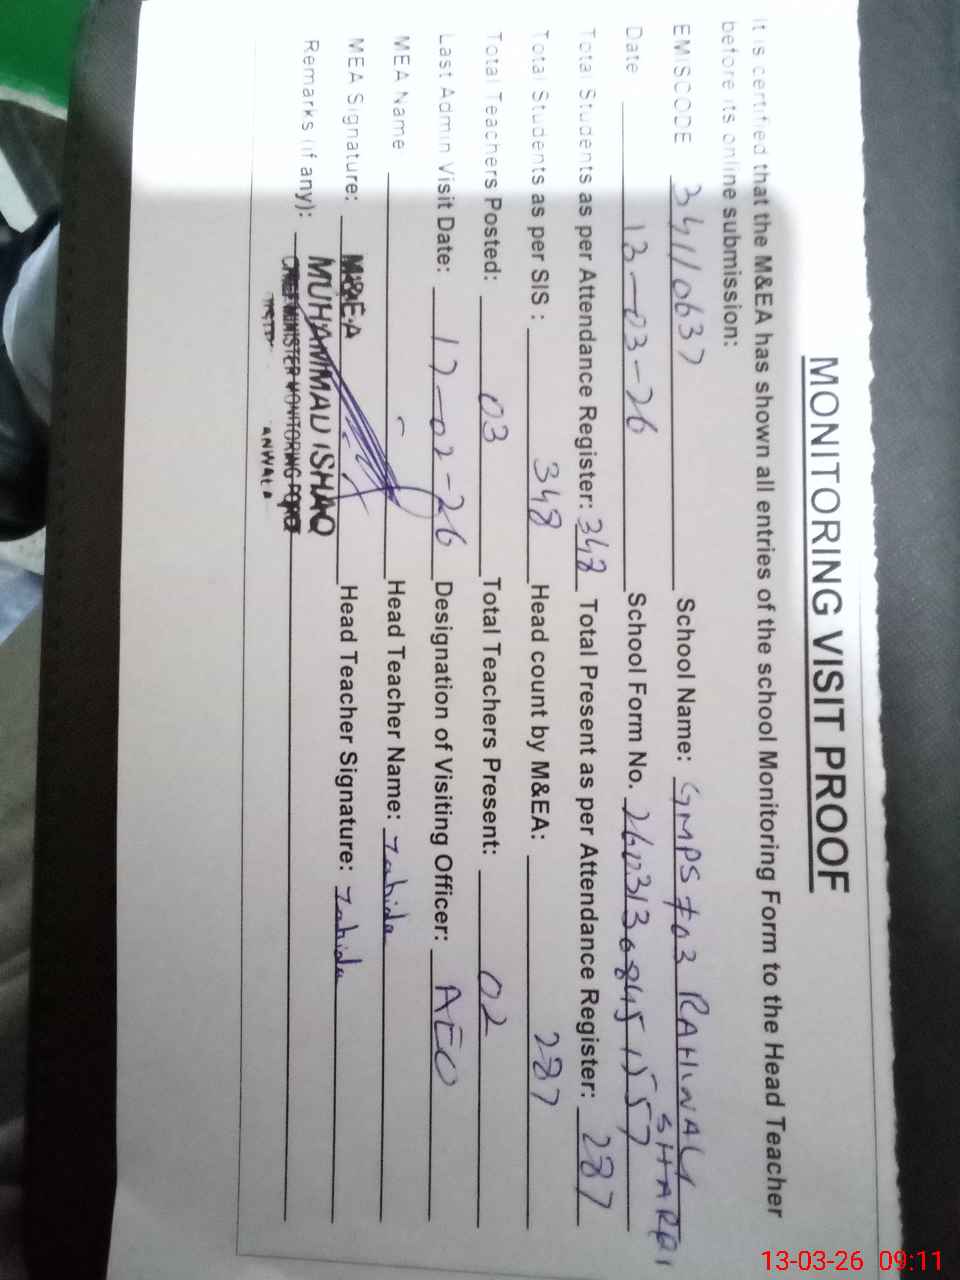 MONITORING VISIT PROOF
It is certified that the M&EA has shown all entries of the school Monitoring Form to the Head Teacher
before its online submission:
EMISCODE 34110637 School Name: GMPS #03 RAHWALI SHARQI
Date 13-03-26 School Form No.
Total Students as per Attendance Register: 348 Total Present as per Attendance Register: 287
Total Students as per SIS : 348 Head count by M&EA: 287
Total Teachers Posted: 03 Total Teachers Present: 02
Last Admin Visit Date: 17-02-26 Designation of Visiting Officer: AEO
MEA Name Head Teacher Name: Zahida
MEA Signature: M&EA Head Teacher Signature: Zahida
MUHAMMAD ISHAQ
Remarks (if any): CHIEF MINISTER MONITORING FORCE
13-03-26 09:11